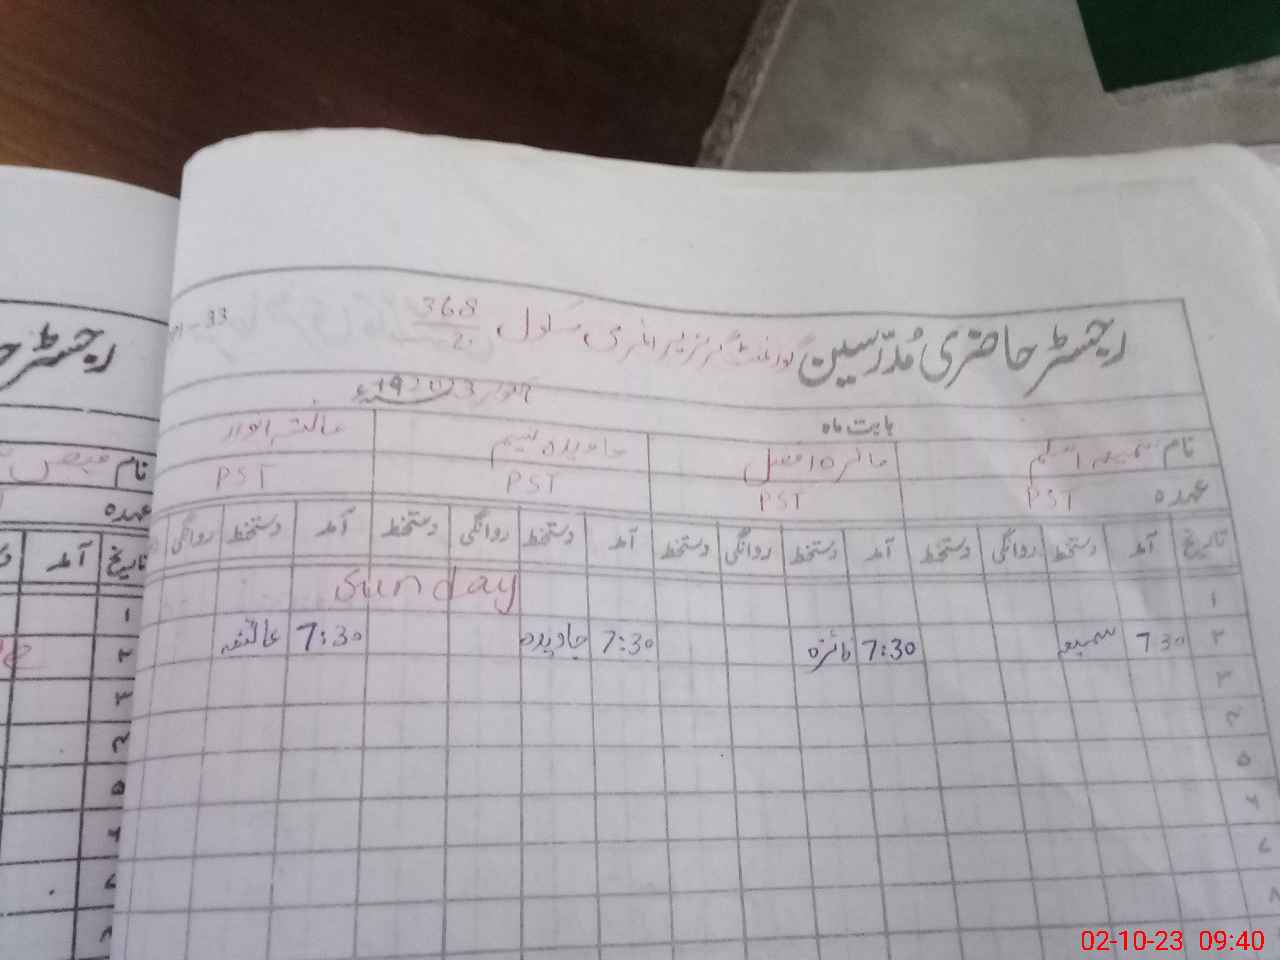 رجسٹر حاضری مُدرّسین گورنمنٹ گرلز پرائمری سکول 368
بابت ماہ اکتوبر 2023
نام سمیعہ اسلم مائرہ افضل جاویدہ نسیم عائشہ انور
عہدہ PST PST PST PST
تاریخ آمد دستخط روانگی دستخط آمد دستخط روانگی دستخط آمد دستخط روانگی دستخط آمد دستخط روانگی
۱ Sunday
۲ 7 30 سمیعہ 7:30 مائرہ 7:30 جاویدہ 7:30 عائشہ
۳
۴
۵
۶
۷
۸
رجسٹر
نام
عہدہ
تاریخ آمد
۱
۲
۳
۴
۵
۶
۷
02-10-23 09:40